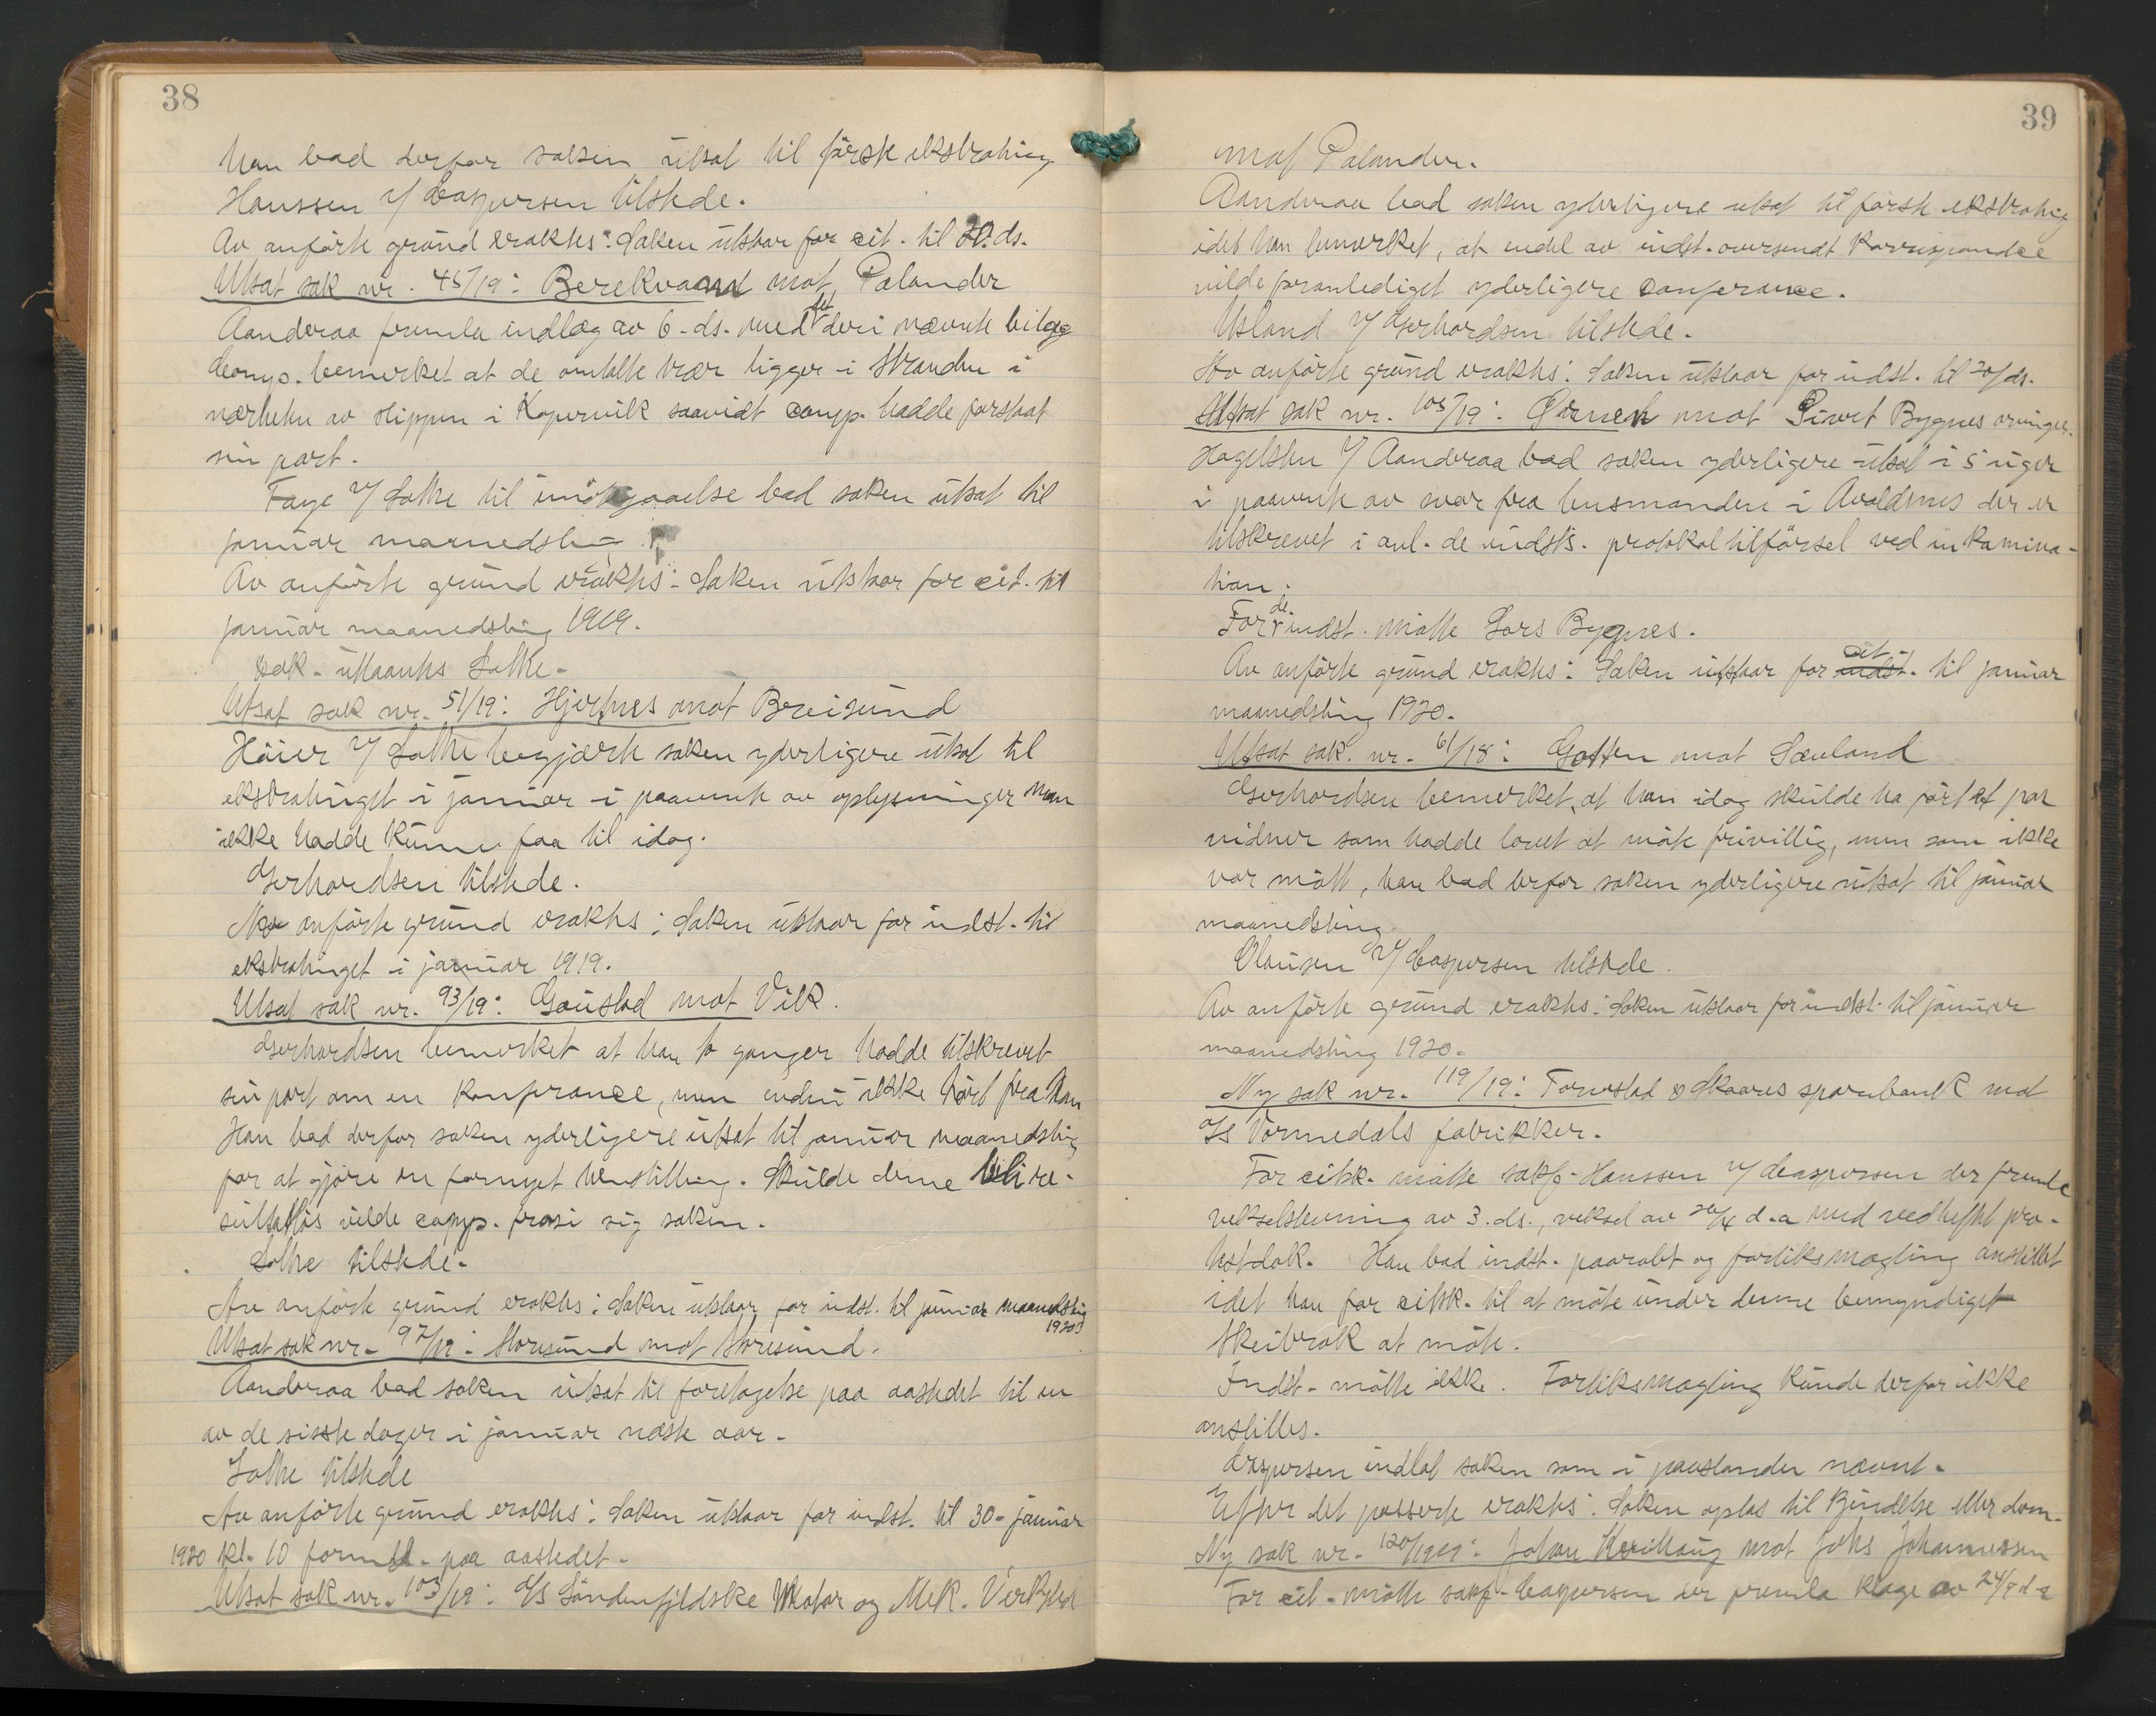 38
han bad derfor saken utsat til förste ekstrating
Hanssen v/ Caspersen tilstede.
Av anförte grund eraktes: Saken utstaar for cit. til 20. ds.
Utsat sak nr. 45/19: Berekvaand mot Palander
Aanderaa fremla indlæg av 6. ds. med det deri nævnte bilag
Comp. bemerket at de omtalte trær ligger i stranden i
nærheten av slippen i Kopervik saavidt comp. hadde forstaat
sin part.
Faye v/ Lothe til imötegaaelse bad saken utsat til
januar maanedsting
Av anförte grund eraktes: Saken utstaar for cit. til
januar maanedsting 1919.
Lothe.
Utsat sak nr. 51/19: Hjertnes mot Breisund
Höier v/ Lothe begjærte saken yderligere utsat til
ekstratinget i januar i paavente av oplysninger man
ikke hadde kunne faa til idag.
Gerhardsen tilstede.
Av anförte grund eraktes: Saken utstaar for indst. til
ekstratinget i januar 1919.
Utsat sak nr. 93/19: Gaustad mot Vik.
Gerhardsen bemerket at han to ganger hadde tilskrevet
sin part om en konferance, men endnu ikke hört fra ham
Han bad derfor saken yderligere utsat til januar maanedsting
for at gjöre en fornyet henstilling. Skulde denne bli re-
sultatlös vilde comp. frasi sig saken.
Lothe tilstede.
Av anförte grund eraktes: Saken utstaar for indst. til januar maanedsting
1920
Utsat sak nr. 97/19: Storesund mot Storesund.
Aanderaa bad saken utsat til foretagelse paa aastedet til en
av de sisste dager i januar næste aar.
Lothe tilstede
Av anförte grund eraktes: Saken utstaar for indst. til 30. januar
1920 kl. 10 formd. paa aastedet.
Utsat sak nr. 103/19: A/S Söndenfjeldske Motor og Mek. Verksted
39
mot Palander.
Aanderaa bad saken yderligere utsat til förste ekstrating
idet han bemerket, at endel av indst. oversendt korrespondce
vilde foranlediget yderligere conferance.
Usland v/ Gerhardsen tilstede.
Av anförte grund eraktes: Saken utstaar for indst. til 20/ds.
Utsat sak nr. 105/19: mot Sivert Bygnes
Hagelsten v/ Aanderaa bad saken yderligere utsat i 5 uger
i paavente av svar fra lensmanden i Avaldsnes der er
tilskrevet i anl. de indst's. protokoltilförsel ved inkamina-
tion.
For de indst. mötte Lars Bygnes.
Av anförte grund eraktes: Saken utstaar for indst. cit. til januar
maanedsting 1920.
Utsat sak. nr. 61/18: Gotten mot Sæuland
Gerhardsen bemerket, at han idag skulde ha fört et par
vidner som hadde lovet at möte frivillig, men som ikke
var mött, han bad derfor saken yderligere utsat til januar
maanedsting.
Olausen v/ Caspersen tilstede.
Av anförte grund eraktes: Saken utstaar for indst. til januar
maanedsting 1920.
Ny sak nr. 119/19: Torvestad & Skaares sparebank mot
A/S Vormedals fabrikker.
For citsk. mötte sakf. Hanssen v/ Caspersen der fremla
vekselstevning av 3. ds., veksel av 20/4 d.a med vedheftet pro-
testdok. Han bad indst. paaropt og forliksmægling anstillet
idet han for citsk. til at möte under denne bemyndiget
Skeibrok at möte.
Indst. mötte ikke. Forliksmægling kunde derfor ikke
anstilles.
Caspersen indlot saken som i paastanden nævnt.
Efter det passerte eraktes: Saken optas til kjendelse eller dom.
Ny sak nr. 120/1919: Johan Kvilhaug mot Johs Johannessen
For cit. mötte sakf. Caspersen der fremla klage av 24/9 d.a